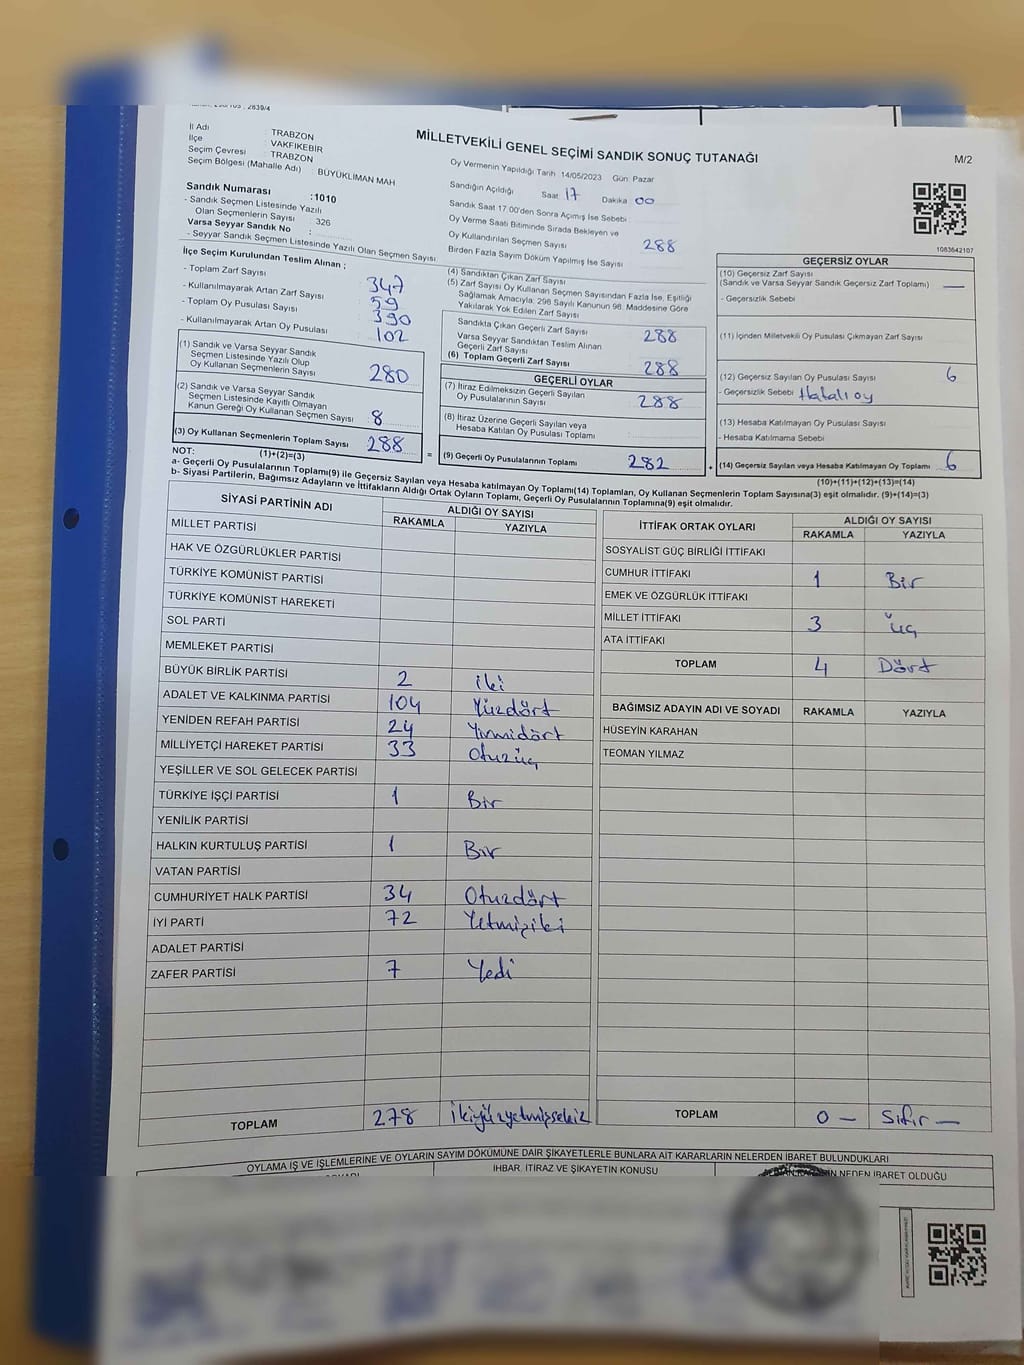 MİLLETVEKİLİ GENEL SEÇİMİ SANDIK SONUÇ TUTANAĞI
M/2
İl Adı : TRABZON
İlçe : VAKFIKEBİR
Seçim Çevresi : TRABZON
Seçim Bölgesi (Mahalle Adı) BÜYÜKLİMAN MAH
Sandık Numarası : 1010
- Sandık Seçmen Listesinde Yazılı
Olan Seçmenlerin Sayısı : 326
Varsa Seyyar Sandık No :
- Seyyar Sandık Seçmen Listesinde Yazılı Olan Seçmen Sayısı
Oy Vermenin Yapıldığı Tarih 14/05/2023 Gün: Pazar
Sandığın Açıldığı Saat 17 Dakika 00
Sandık Saat 17:00'den Sonra Açılmış İse Sebebi
Oy Verme Saati Bitiminde Sırada Bekleyen ve
Oy Kullandırılan Seçmen Sayısı 288
Birden Fazla Sayım Döküm Yapılmış İse Sayısı
1083642107
İlçe Seçim Kurulundan Teslim Alınan ;
- Toplam Zarf Sayısı 347
- Kullanılmayarak Artan Zarf Sayısı 59
- Toplam Oy Pusulası Sayısı 390
- Kullanılmayarak Artan Oy Pusulası 102
(1) Sandık ve Varsa Seyyar Sandık
Seçmen Listesinde Yazılı Olup
Oy Kullanan Seçmenlerin Sayısı 280
(2) Sandık ve Varsa Seyyar Sandık
Seçmen Listesinde Kayıtlı Olmayan
Kanun Gereği Oy Kullanan Seçmen Sayısı 8
(3) Oy Kullanan Seçmenlerin Toplam Sayısı 288
(1)+(2)=(3)
(4) Sandıktan Çıkan Zarf Sayısı
(5) Zarf Sayısı Oy Kullanan Seçmen Sayısından Fazla İse, Eşitliği
Sağlamak Amacıyla, 298 Sayılı Kanunun 98. Maddesine Göre
Yakılarak Yok Edilen Zarf Sayısı
Sandıkta Çıkan Geçerli Zarf Sayısı 288
Varsa Seyyar Sandıktan Teslim Alınan
Geçerli Zarf Sayısı
(6) Toplam Geçerli Zarf Sayısı 288
GEÇERLİ OYLAR
(7) İtiraz Edilmeksizin Geçerli Sayılan
Oy Pusulalarının Sayısı 288
(8) İtiraz Üzerine Geçerli Sayılan veya
Hesaba Katılan Oy Pusulası Toplamı
= (9) Geçerli Oy Pusulalarının Toplamı 282
GEÇERSİZ OYLAR
(10) Geçersiz Zarf Sayısı
(Sandık ve Varsa Seyyar Sandık Geçersiz Zarf Toplamı) —
- Geçersizlik Sebebi
(11) İçinden Milletvekili Oy Pusulası Çıkmayan Zarf Sayısı
(12) Geçersiz Sayılan Oy Pusulası Sayısı 6
- Geçersizlik Sebebi Hatalı oy
(13) Hesaba Katılmayan Oy Pusulası Sayısı
- Hesaba Katılmama Sebebi
(14) Geçersiz Sayılan veya Hesaba Katılmayan Oy Toplamı 6
(10)+(11)+(12)+(13)=(14)
NOT:
a- Geçerli Oy Pusulalarının Toplamı(9) ile Geçersiz Sayılan veya Hesaba katılmayan Oy Toplamı(14) Toplamları, Oy Kullanan Seçmenlerin Toplam Sayısına(3) eşit olmalıdır. (9)+(14)=(3)
b- Siyasi Partilerin, Bağımsız Adayların ve İttifakların Aldığı Ortak Oyların Toplamı, Geçerli Oy Pusulalarının Toplamına(9) eşit olmalıdır.
SİYASİ PARTİNİN ADI ALDIĞI OY SAYISI
RAKAMLA YAZIYLA
MİLLET PARTİSİ
HAK VE ÖZGÜRLÜKLER PARTİSİ
TÜRKİYE KOMÜNİST PARTİSİ
TÜRKİYE KOMÜNİST HAREKETİ
SOL PARTİ
MEMLEKET PARTİSİ
BÜYÜK BİRLİK PARTİSİ 2 iki
ADALET VE KALKINMA PARTİSİ 104 Yüzdört
YENİDEN REFAH PARTİSİ 24 Yirmidört
MİLLİYETÇİ HAREKET PARTİSİ 33 Otuzüç
YEŞİLLER VE SOL GELECEK PARTİSİ
TÜRKİYE İŞÇİ PARTİSİ 1 Bir
YENİLİK PARTİSİ
HALKIN KURTULUŞ PARTİSİ 1 Bir
VATAN PARTİSİ
CUMHURİYET HALK PARTİSİ 34 Otuzdört
İYİ PARTİ 72 Yetmişiki
ADALET PARTİSİ
ZAFER PARTİSİ 7 Yedi
TOPLAM 278 ikiyüzyetmişsekiz
İTTİFAK ORTAK OYLARI ALDIĞI OY SAYISI
RAKAMLA YAZIYLA
SOSYALİST GÜÇ BİRLİĞİ İTTİFAKI
CUMHUR İTTİFAKI 1 Bir
EMEK VE ÖZGÜRLÜK İTTİFAKI
MİLLET İTTİFAKI 3 Üç
ATA İTTİFAKI
TOPLAM 4 Dört
BAĞIMSIZ ADAYIN ADI VE SOYADI RAKAMLA YAZIYLA
HÜSEYİN KARAHAN
TEOMAN YILMAZ
TOPLAM 0 — Sıfır —
OYLAMA İŞ VE İŞLEMLERİNE VE OYLARIN SAYIM DÖKÜMÜNE DAİR ŞİKAYETLERLE BUNLARA AİT KARARLARIN NELERDEN İBARET BULUNDUKLARI
İHBAR, İTİRAZ VE ŞİKAYETİN KONUSU
NEDEN İBARET OLDUĞU